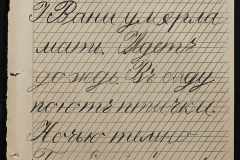 У Вани умерла
мать. Идетъ
дождь. Въ саду
поютъ птички.
Ночью темно